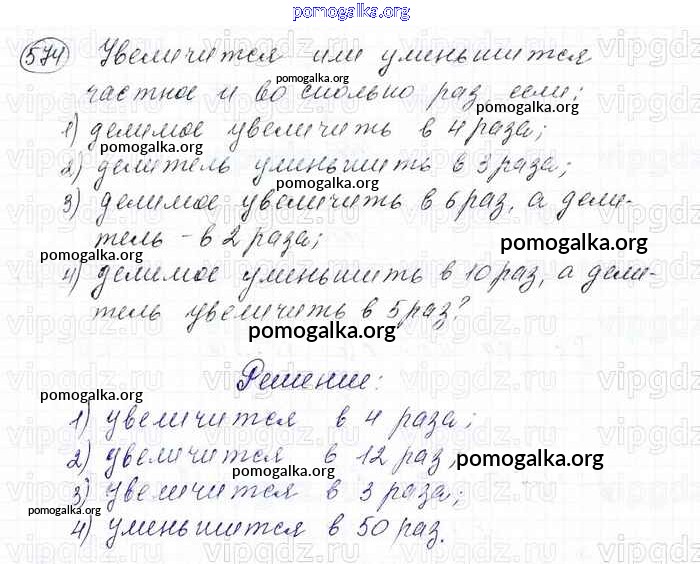 pomogalka.org
574 Увеличится или уменьшится
pomogalka.org
частное и во сколько раз, если:
pomogalka.org
1) делимое увеличить в 4 раза;
pomogalka.org
2) делитель уменьшить в 3 раза;
pomogalka.org
3) делимое увеличить в 6 раз, а дели-
тель - в 2 раза;
pomogalka.org
pomogalka.org
4) делимое уменьшить в 10 раз, а дели-
тель увеличить в 5 раз?
pomogalka.org
Решение:
pomogalka.org
1) увеличится в 4 раза;
pomogalka.org
2) увеличится в 12 раз,
pomogalka.org
pomogalka.org
3) увеличится в 3 раза;
pomogalka.org
4) уменьшится в 50 раз.